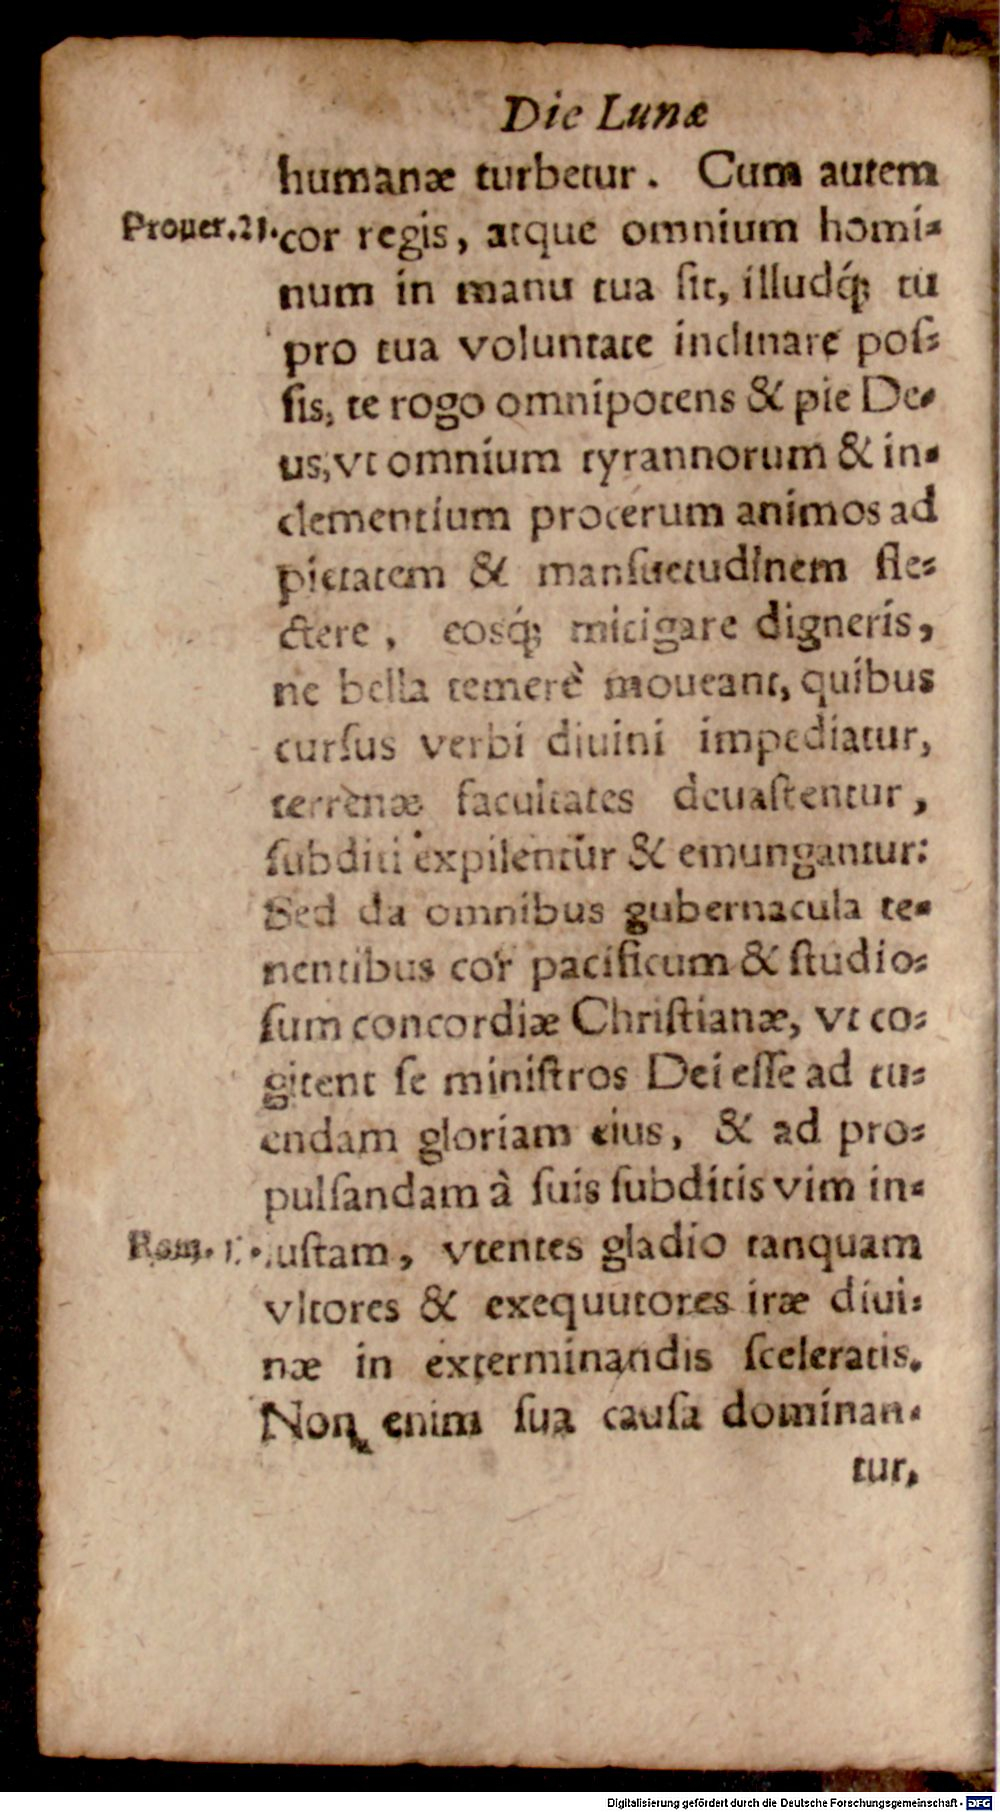 Die Lunæ
humanæ turbetur. Cum autem
Prouer.21. cor regis, atque omnium homi-
num in manu tua ſit, illudq́; tu
pro tua voluntate inclinare poſ-
ſis, te rogo omnipotens & pie De-
us, vt omnium tyrannorum & in-
clementium procerum animos ad
pietatem & manſuetudinem fle-
ctere, eosq́; mitigare digneris,
ne bella temerè moueant, quibus
curſus verbi diuini impediatur,
terrenæ facultates deuaſtentur,
ſubditi expilentur & emungantur:
Sed da omnibus gubernacula te-
nentibus cor pacificum & ſtudio-
ſum concordiæ Chriſtianæ, vt co-
gitent ſe miniſtros Dei eſſe ad tu-
endam gloriam eius, & ad pro-
pulſandam à ſuis ſubditis vim in-
Rom. iuſtam, vtentes gladio tanquam
vltores & exequutores iræ diui-
næ in exterminandis ſceleratis.
Non enim ſua cauſa dominan-
tur.
Digitalisierung gefördert durch die Deutsche Forschungsgemeinschaft - DFG